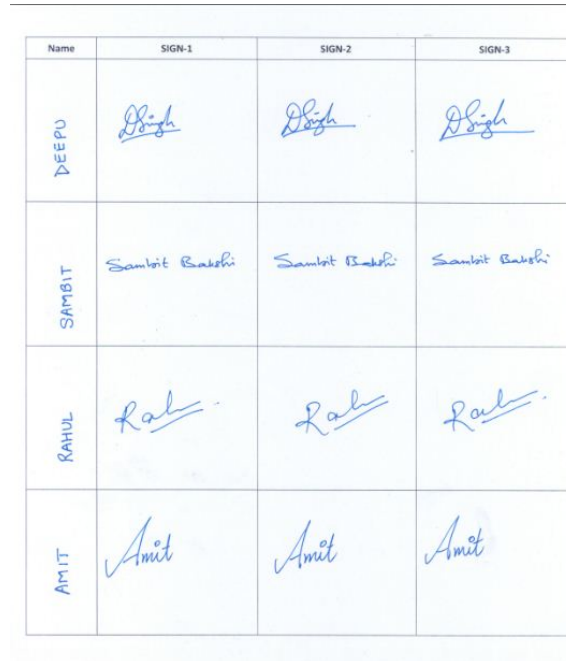 Name SIGN-1 SIGN-2 SIGN-3
DEEPU DSingh DSingh DSingh
SAMBIT Sambit Bakshi Sambit Bakshi Sambit Bakshi
RAHUL Rahul Rahul Rahul
AMIT Amit Amit Amit